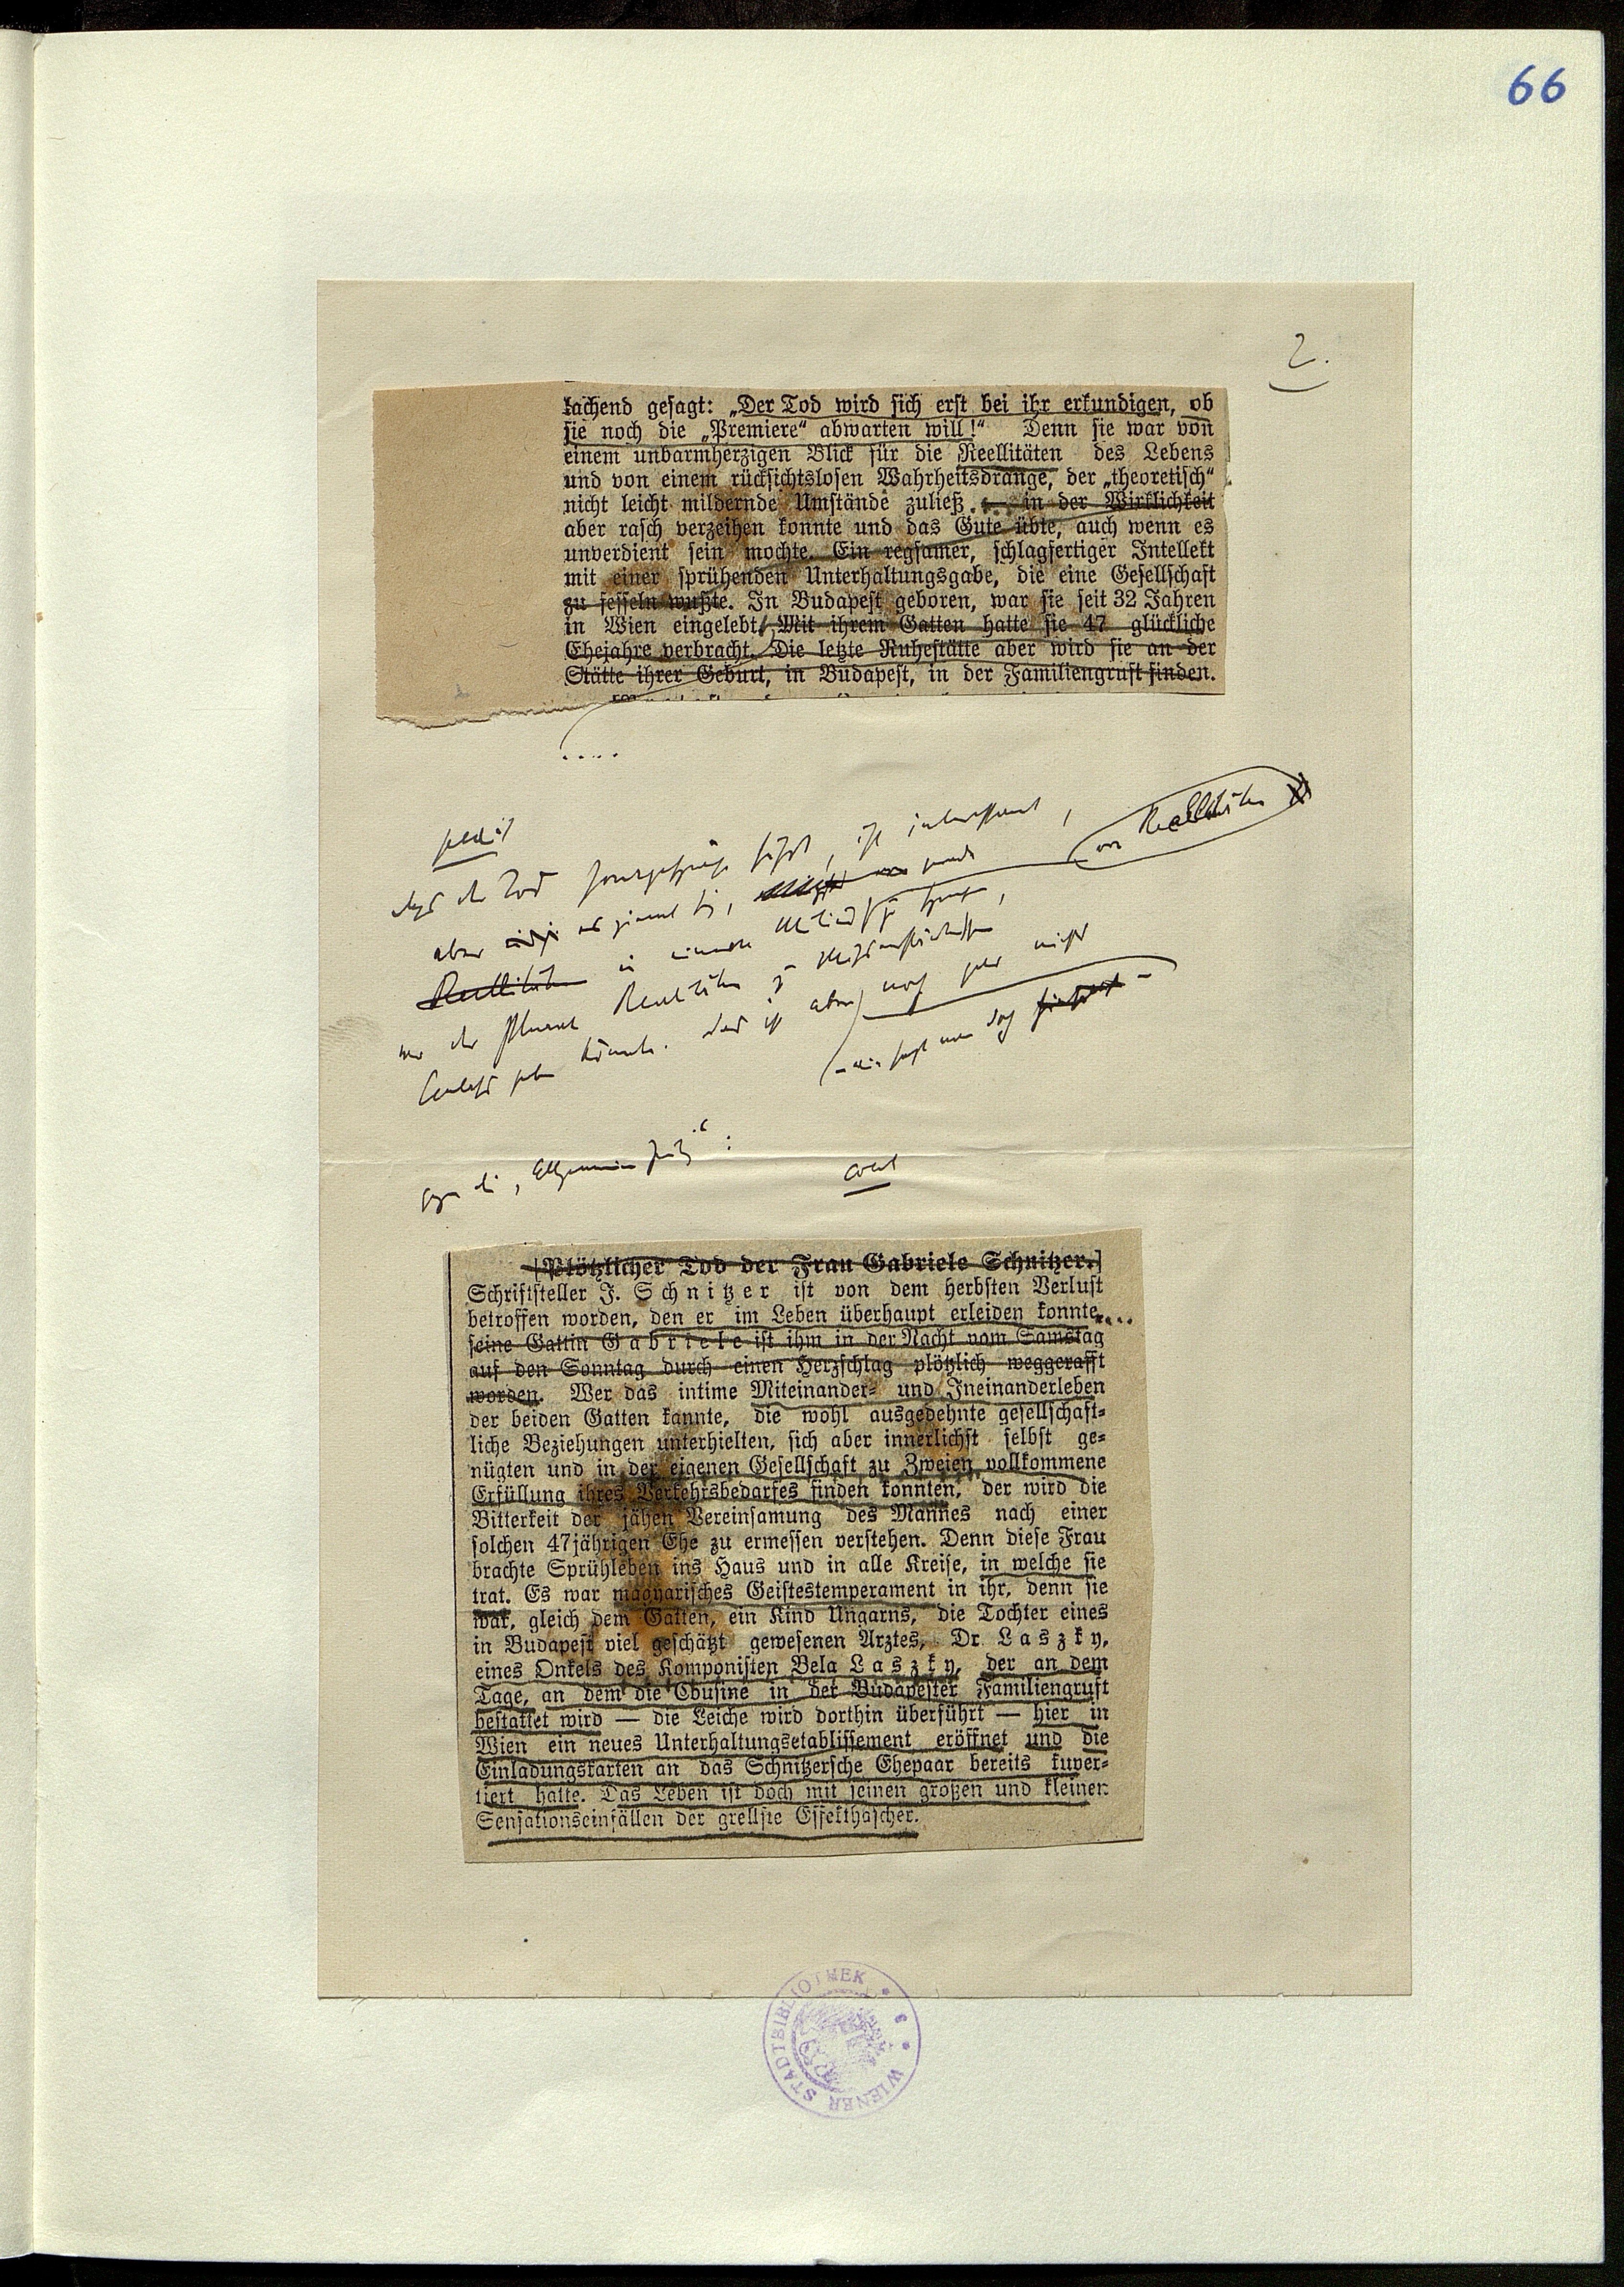 66
2.
lachend gesagt: „Der Tod wird sich erst bei ihr erkundigen, ob
sie noch die „Premiere“ abwarten will!“ Denn sie war von
einem unbarmherzigen Blick für die Reellitäten des Lebens
und von einem rücksichtslosen Wahrheitsdrange, der „theoretisch“
nicht leicht mildernde Umstände zuließ . . . in der Wirklichkeit
aber rasch verzeihen konnte und das Gute übte, auch wenn es
unverdient sein mochte. Ein regsamer, schlagfertiger Intellekt
mit einer sprühenden Unterhaltungsgabe, die eine Gesellschaft
zu fesseln wußte. In Budapest geboren, war sie seit 32 Jahren
in Wien eingelebt. Mit ihrem Gatten hatte sie 47 glückliche
Ehejahre verbracht. Die letzte Ruhestätte aber wird sie an der
Stätte ihrer Geburt, in Budapest, in der Familiengruft finden.
. . . .
der Tod ist interessant,
aber
Realitäten
Realitäten
der Plural Realitäten
könnte. das ist aber noch nicht
die „Allgemeine Zeitung“ :
[Plötzlicher Tod der Frau Gabriele Schnitzer.]
Schriftsteller J. Schnitzer ist von dem herbsten Verlust
betroffen worden, den er im Leben überhaupt erleiden konnte....
seine Gattin Gabriele ist ihm in der Nacht vom Samstag
auf den Sonntag durch einen Herzschlag plötzlich weggerafft
worden. Wer das intime Miteinander- und Ineinanderleben
der beiden Gatten kannte, die wohl ausgedehnte gesellschaft-
liche Beziehungen unterhielten, sich aber innerlichst selbst ge-
nügten und in der eigenen Gesellschaft zu Zweien vollkommene
Erfüllung ihres Verkehrsbedarfes finden konnten, der wird die
Bitterkeit der jähen Vereinsamung des Mannes nach einer
solchen 47jährigen Ehe zu ermessen verstehen. Denn diese Frau
brachte Sprühleben ins Haus und in alle Kreise, in welche sie
trat. Es war magyarisches Geistestemperament in ihr, denn sie
war, gleich dem Gatten, ein Kind Ungarns, die Tochter eines
in Budapest viel geschätzt gewesenen Arztes, Dr. Laszky,
eines Onkels des Komponisten Bela Laszky, der an dem
Tage, an dem die Cousine in der Budapester Familiengruft
bestattet wird — die Leiche wird dorthin überführt — hier in
Wien ein neues Unterhaltungsetablissement eröffnet und die
Einladungskarten an das Schnitzersche Ehepaar bereits kuver-
tiert hatte. Das Leben ist doch mit seinen großen und kleinen
Sensationseinfällen der grellste Effekthascher.
WIENER STADTBIBLIOTHEK